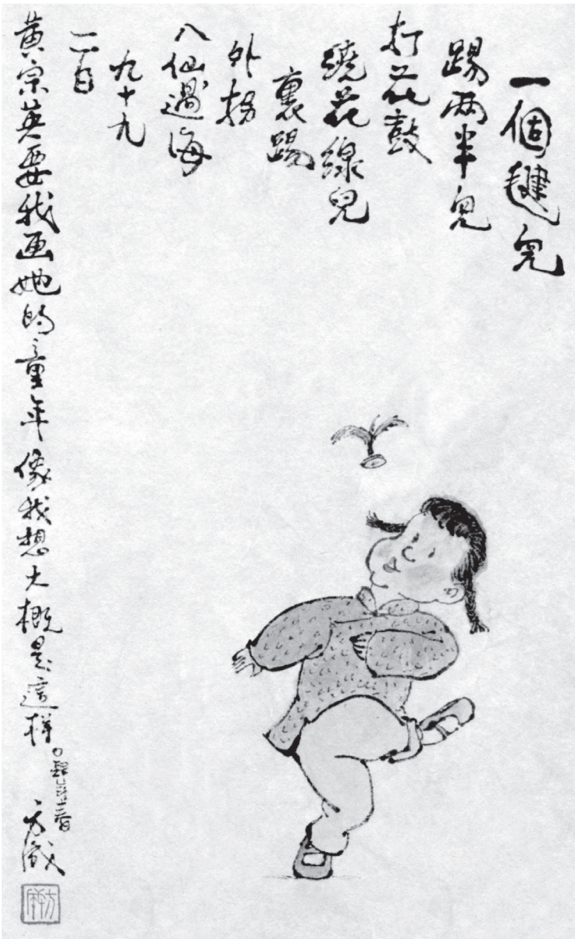 一個毽兒
踢兩半兒
打花鼓
繞花線兒
裏踢
外拐
八仙過海
九十九
一百
黄宗英要我画她的童年像我想大概是這樣。
方成